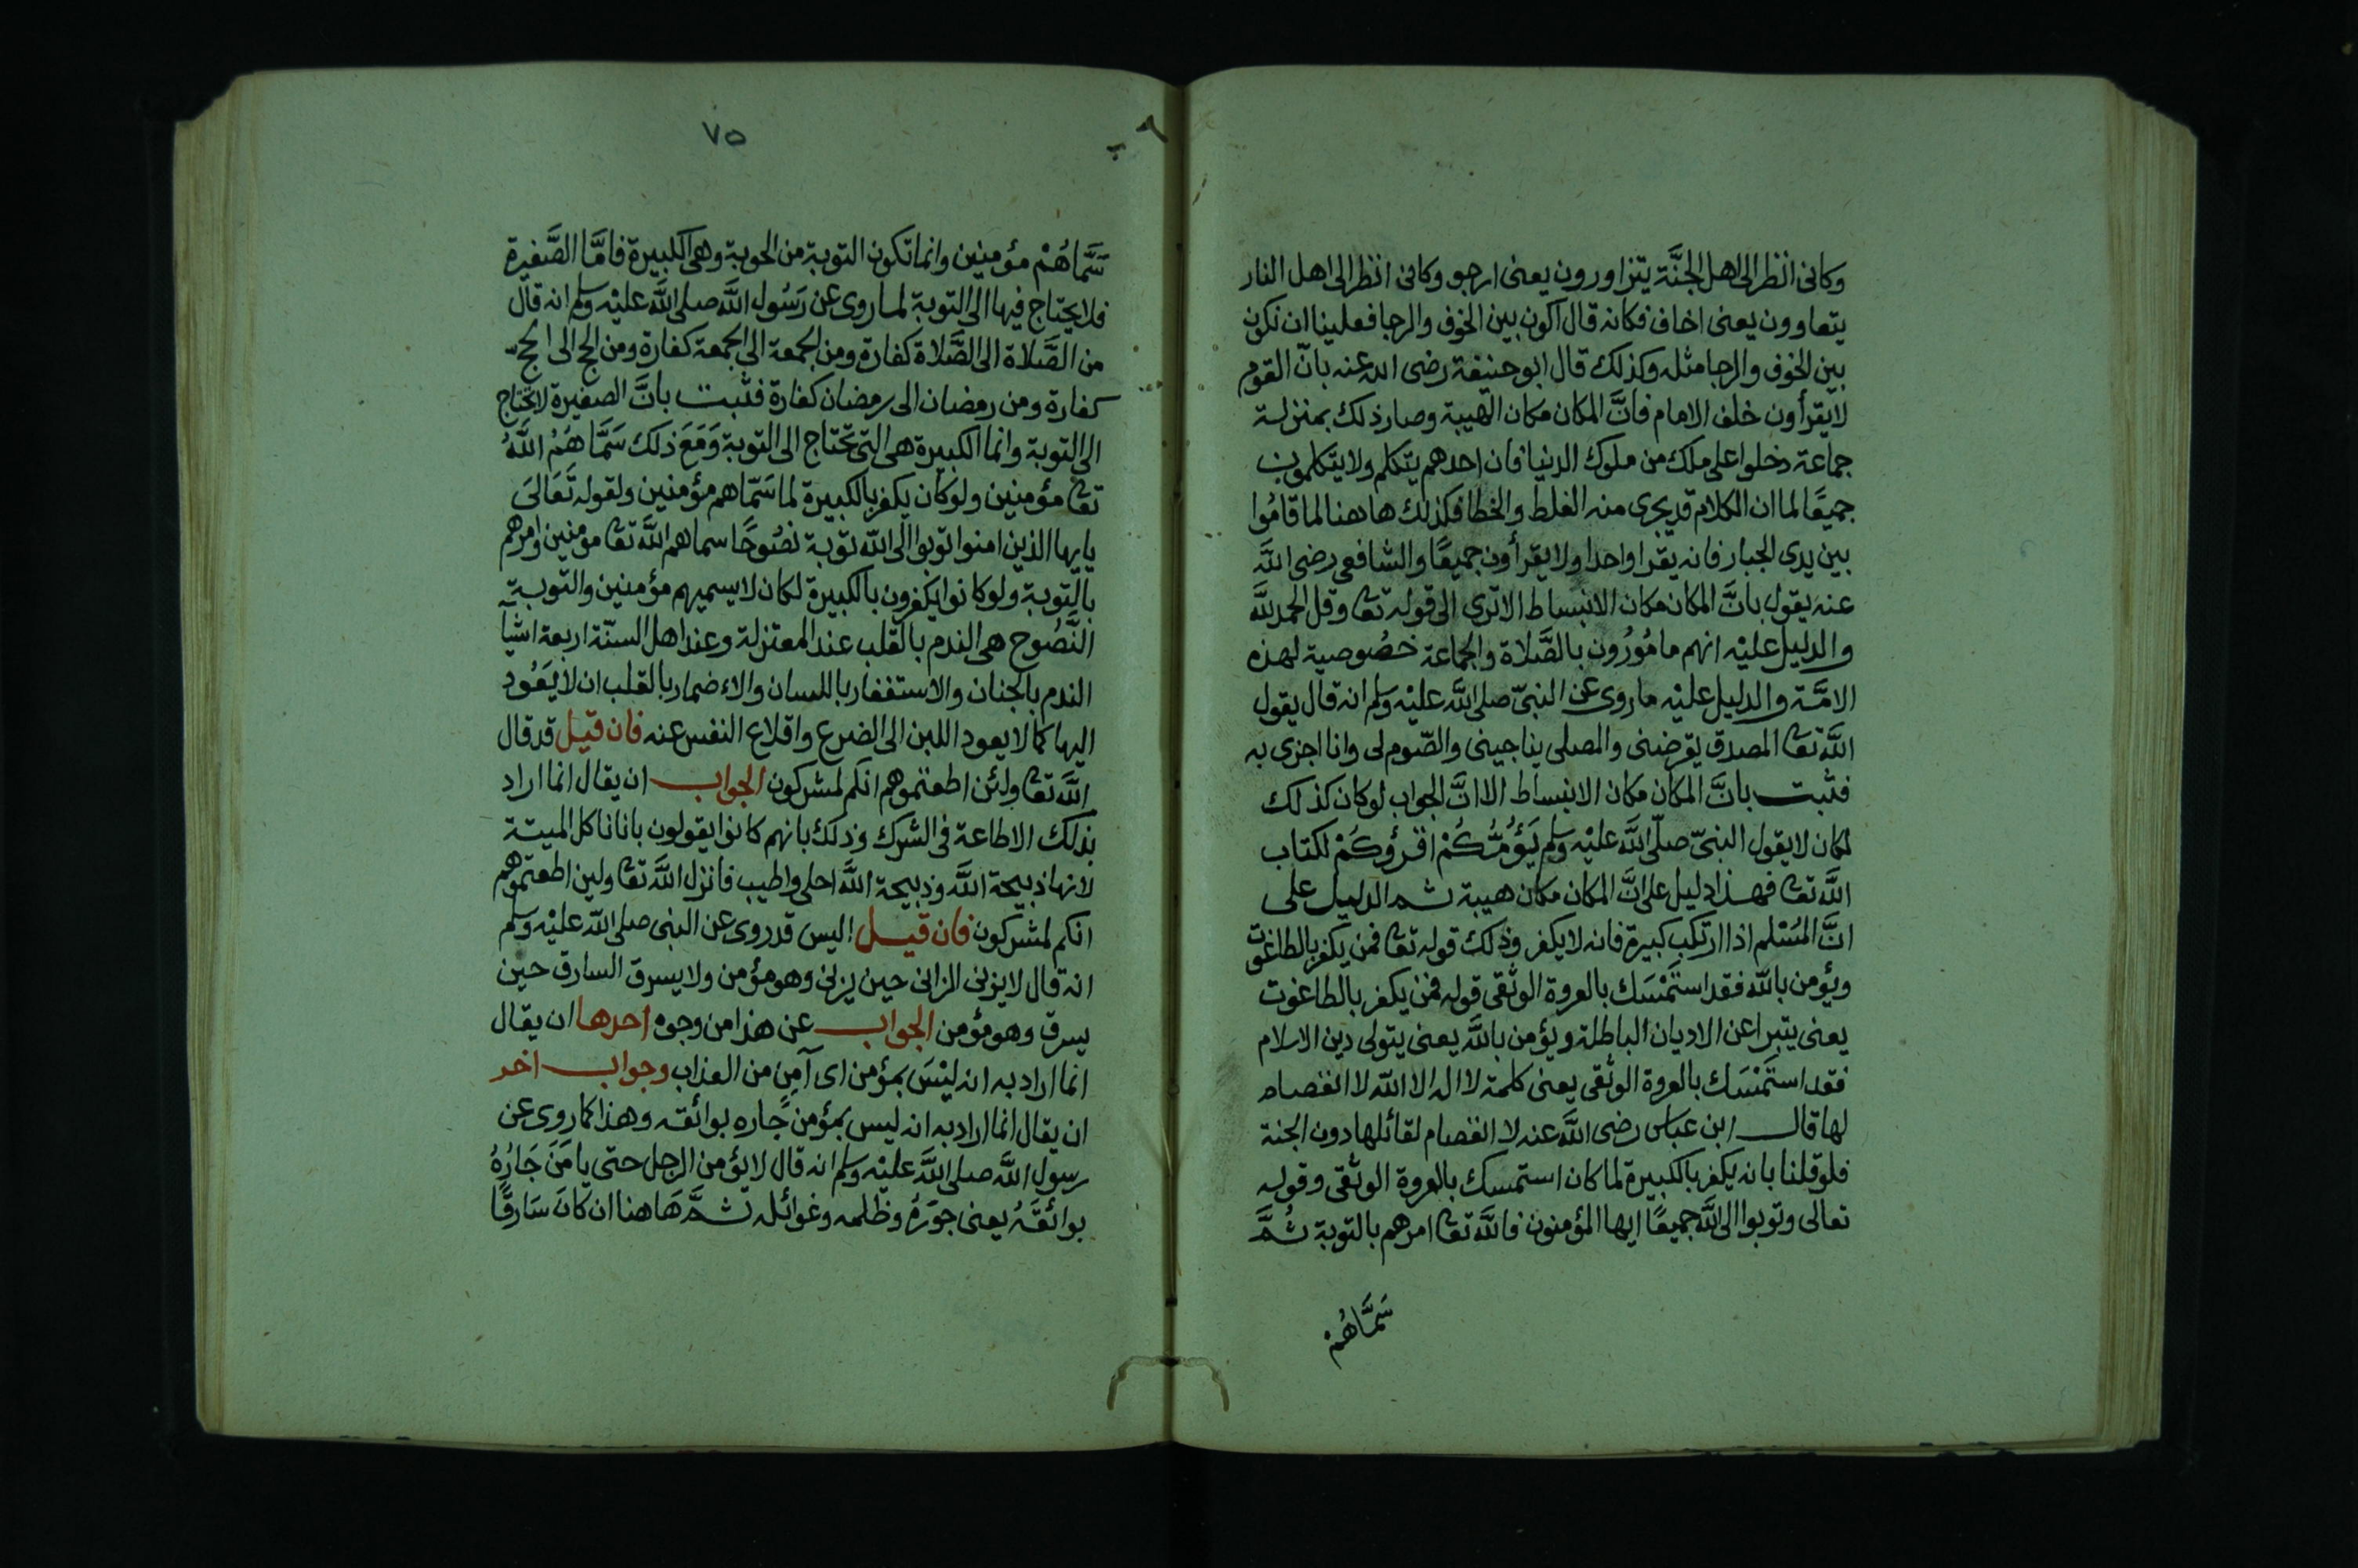 وكانى انظر الى اهل الجنَّة يتزاورون يعنى ارجو وكانى انظر الى اهل النار
يتعاوون يعنى اخاف فكانه قال اكون بين الخوف والرجا فعلينا ان نكون
بين الخوف والرجا مثله وكذلك قال ابو حنيفة رضى الله عنه بانّ القوم
لا يقرأون خلف الامام فانَّ المكان مكان الهيبة وصار ذلك بمنزلة
جماعة دخلوا على ملك من ملوك الدنيا فان احدهم يتكلم ولا يتكلمون
جميعًا لما ان الكلام قد يجرى منه الغلط والخطا فكذلك هاهنا لما قامُوا
بين يدى الجبار فانه يقرا واحدا ولا يقرأون جميعًا والشافعى رضى اللَّه
عنه يقول بانَّ المكان مكان الانبساط الا ترى الى قوله تعا وقل الحمد للَّه
والدليل عليْه انهم مامُورُون بالصَّلاة والجماعة خصُوصية لهذه
الامَّة والدليل عليْه ما روى عن النبىّ صلى اللَّه عليْه وسلم انه قال يقول
اللَّه تعا المصدق يقرضنى والمصلى يناجينى والصّوم لى وانا اجزى به
فثبت بانَّ المكان مكان الانبساط الا انَّ الجواب لو كان كذلك
لكان لا يقول النبىّ صلّى اللَّه عليْه وسلم يَؤُمُّكُمْ اقرؤكُمْ لكتاب
اللَّه تعا فهذا دليل على انَّ المكان مكان هيبة ثم الدليل على
انَّ المُسْلم اذا ارتكب كبيرة فانه لا يكفر وذلك قوله تعا فمن يكفر بالطاغوت
ويؤمن باللّه فقد استَمْسَك بالعروة الوثقى قوله فمن يكفر بالطاغوت
يعنى يتبرا عن الاديان الباطلة ويؤمن باللَّه يعنى يتولى دين الاسلام
فقد استَمْسَك بالعروة الوثقى يعنى كلمة لا اله الا اللّه لا انفصام
لها قال ابن عباس رضى اللَّه عنه لا انفصام لقائلها دون الجنة
فلو قلنا بانه يكفر بالكبيرة لما كان استمسك بالعروة الوثقى وقوله
تعالى وتوبوا الى اللَّه جميعًا ايها المؤمنون فاللَّه تعا امرهم بالتوبة ثُمَّ
سَمَّاهُمْ
٧٥
سَمَّاهُمْ مؤمنين وانما تكون التوبة من الحوبة وهى الكبيرة فامَّا الصَّغيرة
فلا يحتاج فيها الى التوبة لما روى عن رَسُول اللَّه صلى اللَّه عليْه وسلم انه قال
من الصَّلاة الى الصَّلاة كفارة ومن الجمعة الى الجمعة كفارة ومن الحج الى الحجّ
كفارة ومن رمضان الى رمضان كفارة فثبت بانَّ الصغيرة لا تحتاج
الى التوبة وانما الكبيرة هى التى تحتاج الى التوبة وَمَعَ ذلك سَمَّاهُمُ اللَّهُ
تعا مؤمنين ولو كان يكفر بالكبيرة لما سَمّاهم مؤمنين ولقوله تَعَالىَ
يايها الذين امنوا توبوا الى اللّه توبة نصُوحًا سماهم اللَّه تعا مؤمنين وامرهم
بالتوبة ولو كانوا يكفرون بالكبيرة لكان لا يسميهم مؤمنين والتوبة
النَّصُوح هى الندم بالقلب عند المعتزلة وعند اهل السنّة اربعة اشيآ
الندم بالجنان والاستغفار باللسان والاءضمار بالقلب ان لا يَعُود
اليها كما لا يعود اللبن الى الضرع واقلاع النفس عنه فان قيل قد قال
اللَّه تعا ولئن اطعتموهم انكم لمشركون الجواب ان يقال انما اراد
بذلك الاطاعة فى الشرك وذلك بانهم كانوا يقولون بانا ناكل الميتة
لانها ذبيحة اللَّه وذبيحة اللَّه احلى واطيب فانزل اللَّه تعا ولين اطعتموهم
انكم لمشركون فان قيل اليس قد روى عن النبى صلى اللّه عليْه وسلم
انه قال لا يزنى الزانى حين يزنى وهو مؤمن ولا يسرق السارق حين
يسرق وهو مؤمن الجواب عن هذا من وجوه احدها ان يقال
انما اراد به انه ليْسَ بمؤمن اى آمِن من العذاب وجواب اخر
ان يقال انما اراد به انه ليس بمؤمن جاره بوائقه وهذا كما روى عن
رسول اللَّه صلى اللَّه عليْه وسلم انه قال لا يؤمن الرجل حتى يامَنَ جَارُهُ
بوائقَهُ يعنى جَوَرهُ وظلمه وغوائله ثمَّ هَاهنا ان كانَ سَارقًا